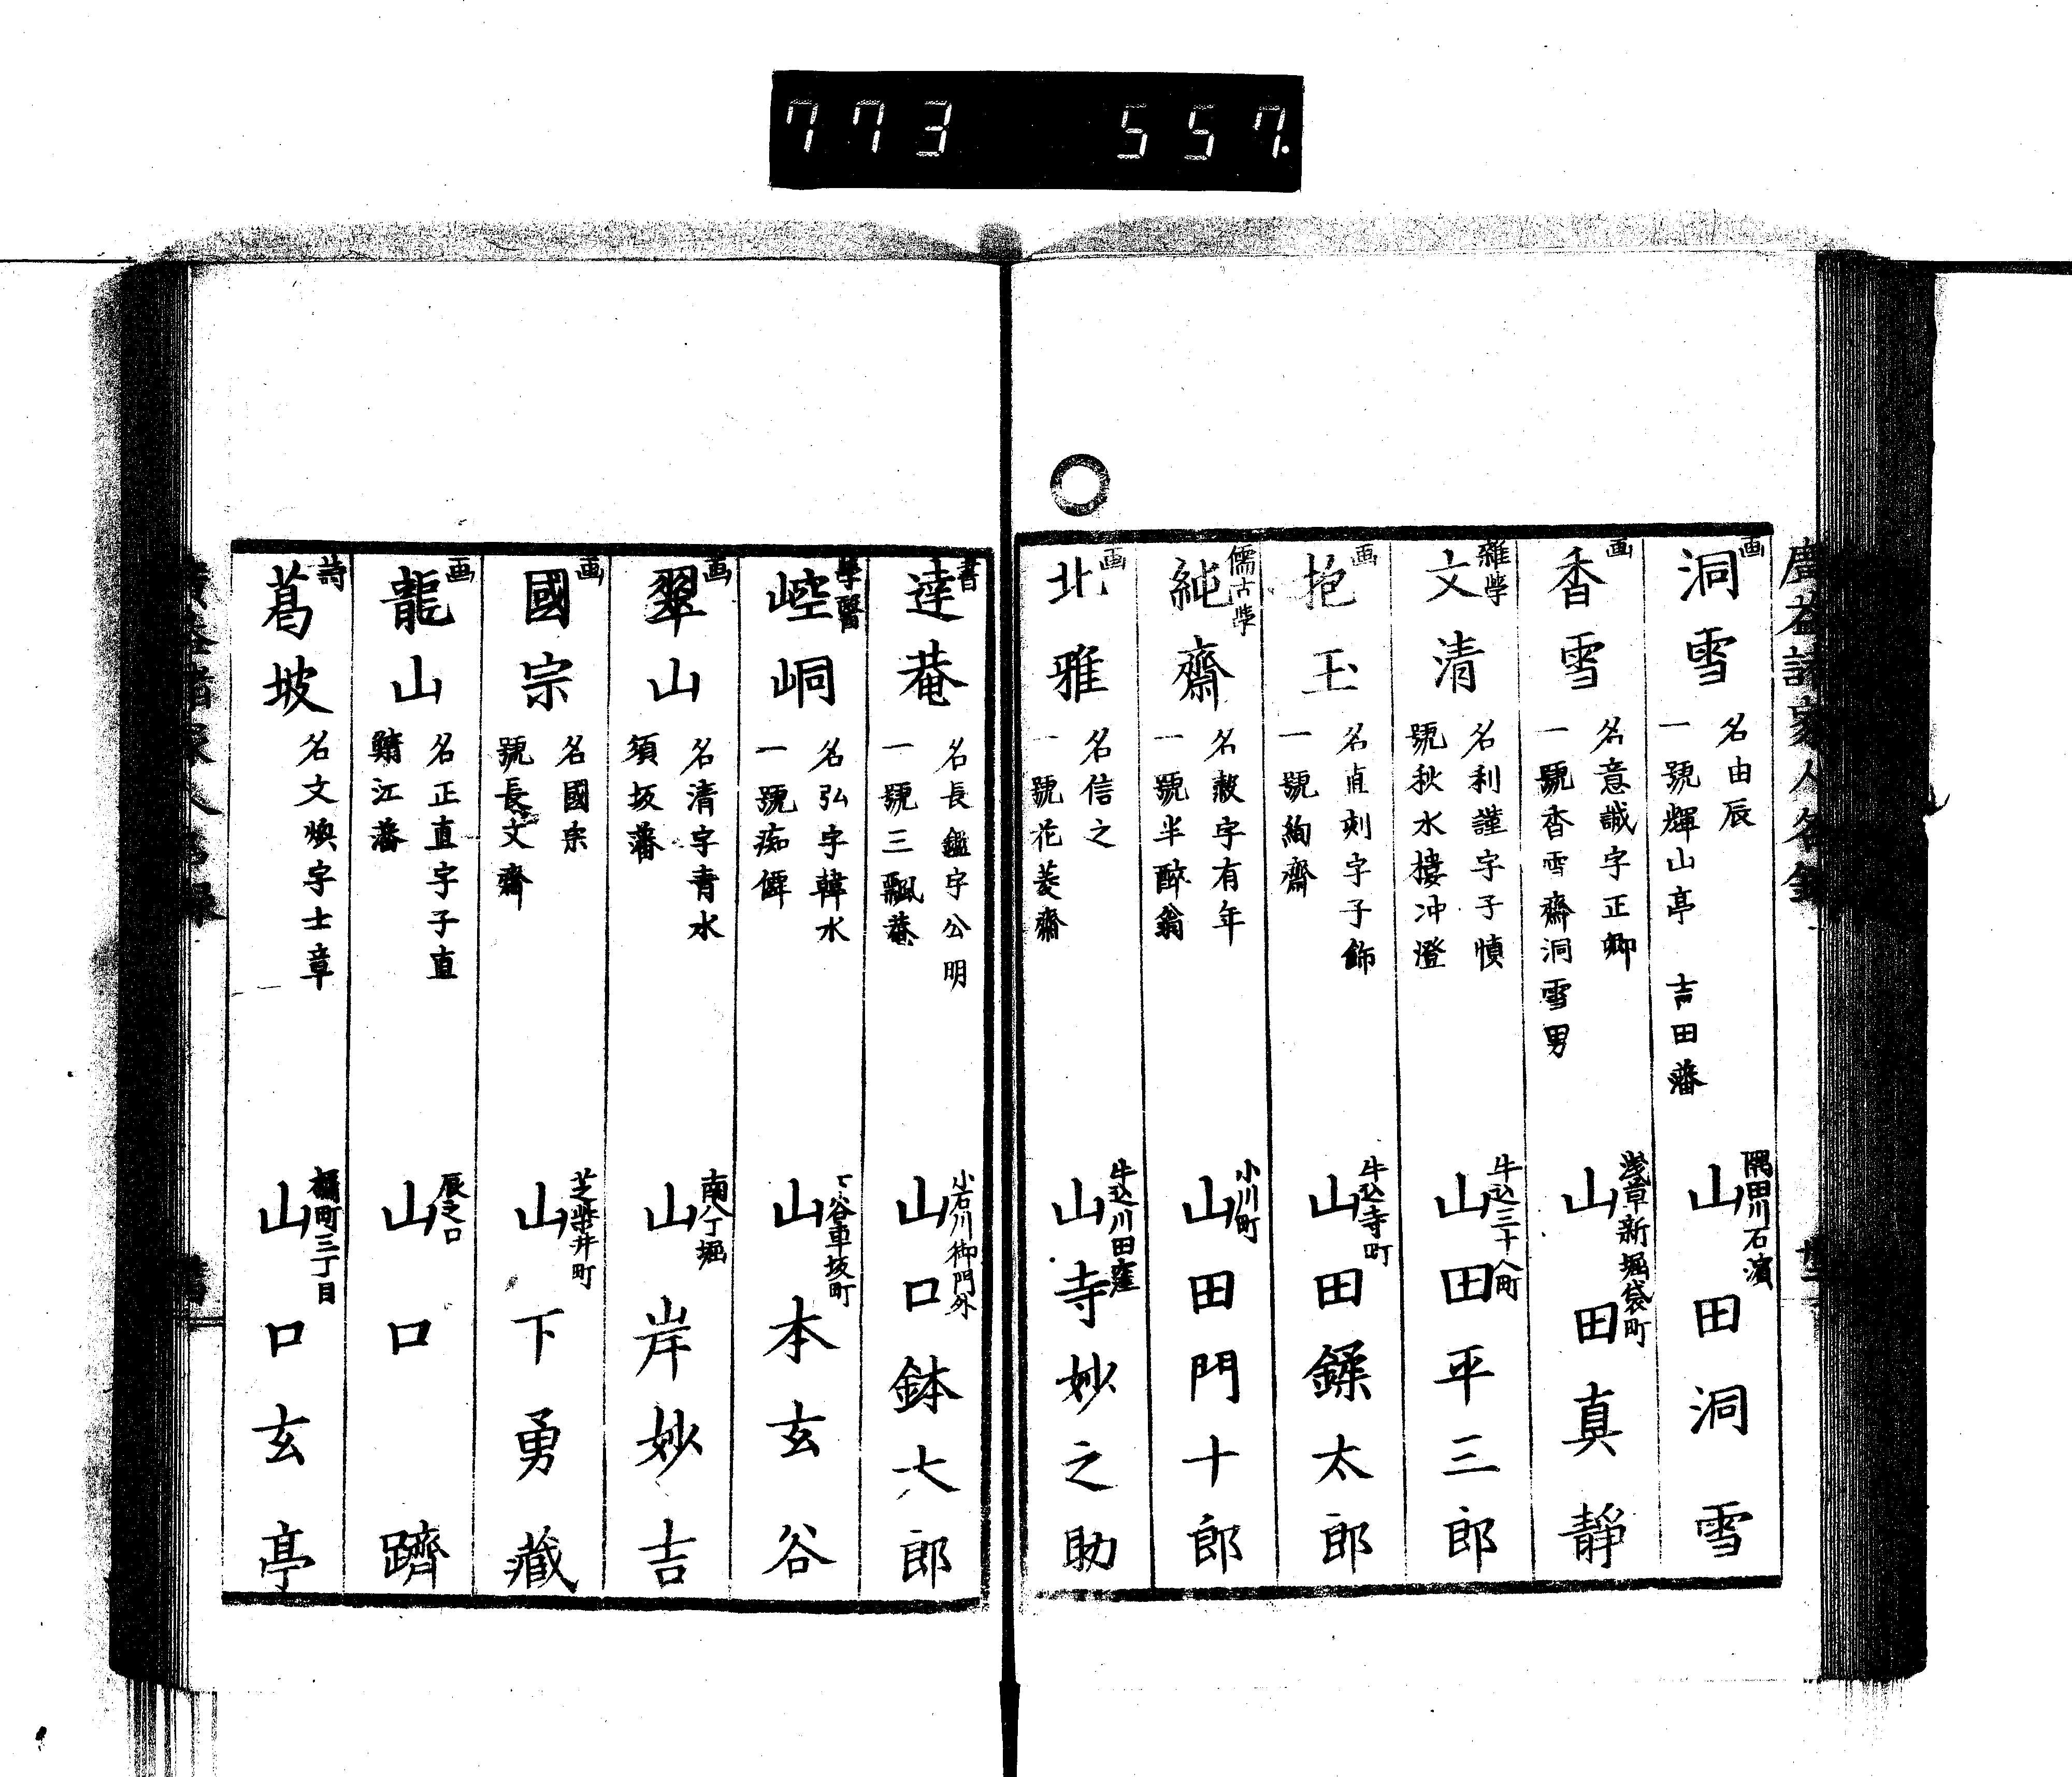 773 557.
廣益諸家人名録
画 洞雪 名由辰
一號輝山亭 吉田藩
隅田川石濱 山田洞雪
画 香雪 名意誠字正卿
一號香雪齋洞雪男
淺草新堀袋町 山田真靜
雜學 文清 名利謹字子慎
號秋水樓冲澄
牛込三十人町 山田平三郎
画 抱玉 名直刻字子飾
一號絢齋
牛込寺町 山田鑅太郎
儒古學 純齋 名穀字有年
一號半醉翁
小川町 山田門十郎
画 北雅 名信之
一號花菱齋
牛込川田窪 山寺妙之助
書 達菴 名長鑑字公明
一號三瓢菴
小石川御門外 山口鉢七郎
學醫 崆峒 名弘字韓水
一號痴僊
下谷車坂町 山本玄谷
画 翠山 名清字青水
須坂藩
南八丁堀 山岸妙吉
画 國宗 名國宗
號長文齋
芝柴井町 山下勇藏
画 龍山 名正直字子直
鯖江藩
辰之口 山口躋
詩 葛坡 名文煥字士章
橘町三丁目 山口玄亭